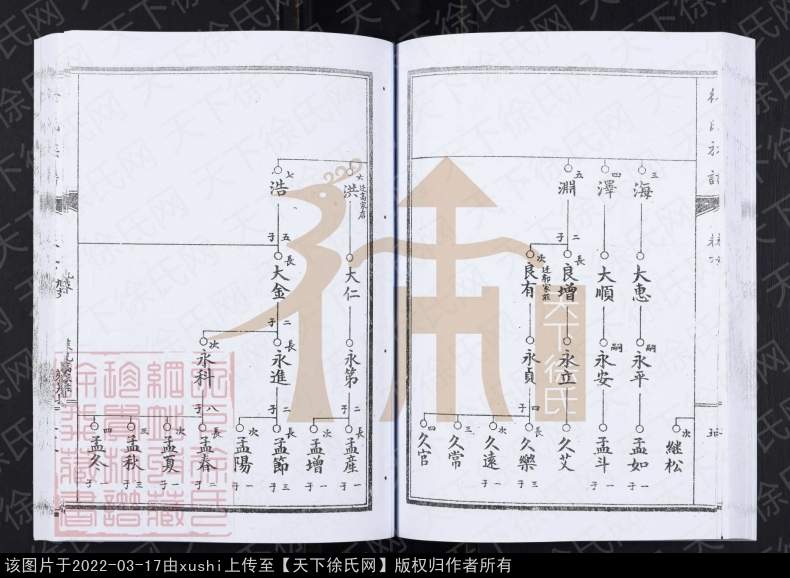 徐氏族譜
三 海
大惠
嗣 永平
孟如
一子
次 继松
四 澤
大順
嗣 永安
孟斗
一子
五 淵
二子
長 良增
永立
久艾
次 迁郝家庄 良有
永貞
四子
長 久樂
一子
次 久遠
一子
三 久常
四 久官
六 迁高家店 洪
大仁
永第
二子
長 孟産
一子
次 孟增
一子
七 浩
五子
長 大金
二子
長 永進
二子
長 孟節
三子
次 孟陽
一子
次 永科
八子
長 孟春
二子
次 孟夏
一子
三 孟秋
三子
四 孟冬
子
徐
天下徐氏
天下徐氏网
该图片于2022-03-17由xushi上传至【天下徐氏网】版权归作者所有